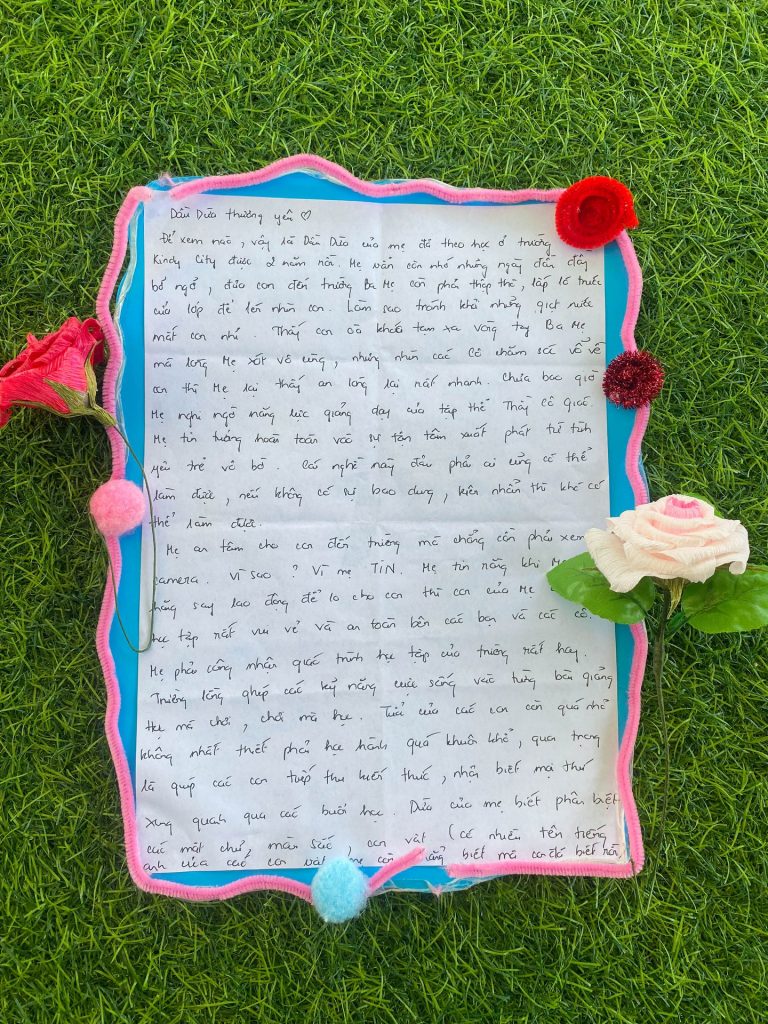 Dấu Dừa thương yêu ♡
Để xem nào, vậy là Dấu Dừa của mẹ đã theo học ở trường
Kindy City được 2 năm rồi. Mẹ vẫn còn nhớ những ngày đầu đầy
bỡ ngỡ, đưa con đến trường Ba Mẹ còn phải thấp thỏ, lấp ló trước
cửa lớp để lén nhìn con. Làm sao tránh khỏi những giọt nước
mắt con nhỉ. Thấy con oà khóc tạm xa vòng tay Ba Mẹ
mà lòng Mẹ xót vô cùng, nhưng nhìn các Cô chăm sóc vỗ về
con thì Mẹ lại thấy an lòng lại rất nhanh. Chưa bao giờ
Mẹ nghi ngờ năng lực giảng dạy của tập thể Thầy Cô giáo.
Mẹ tin tưởng hoàn toàn vào sự tận tâm xuất phát từ tình
yêu trẻ vô bờ. Cái nghề này đâu phải ai cũng có thể
làm được, nếu không có sự bao dung, kiên nhẫn thì khó có
thể làm được.
Mẹ an tâm cho con đến trường mà chẳng cần phải xem
camera. Vì sao? Vì mẹ TIN. Mẹ tin rằng khi
hăng say lao động để lo cho con thì con của Mẹ
học tập rất vui vẻ và an toàn bên các bạn và các cô.
Mẹ phải công nhận quá trình học tập của trường rất hay.
Trường lồng ghép các kỹ năng cuộc sống vào từng bài giảng
Học mà chơi, chơi mà học. Tuổi của các con còn quá nhỏ
không nhất thiết phải học hành quá khuôn khổ, quan trọng
là giúp các con tiếp thu kiến thức, nhận biết mọi thứ
xung quanh qua các buổi học. Dừa của mẹ biết phân biệt
các mặt chữ, màu sắc, con vật (có nhiều tên tiếng
anh của các con vật mẹ còn chẳng biết mà con đã biết rồi,